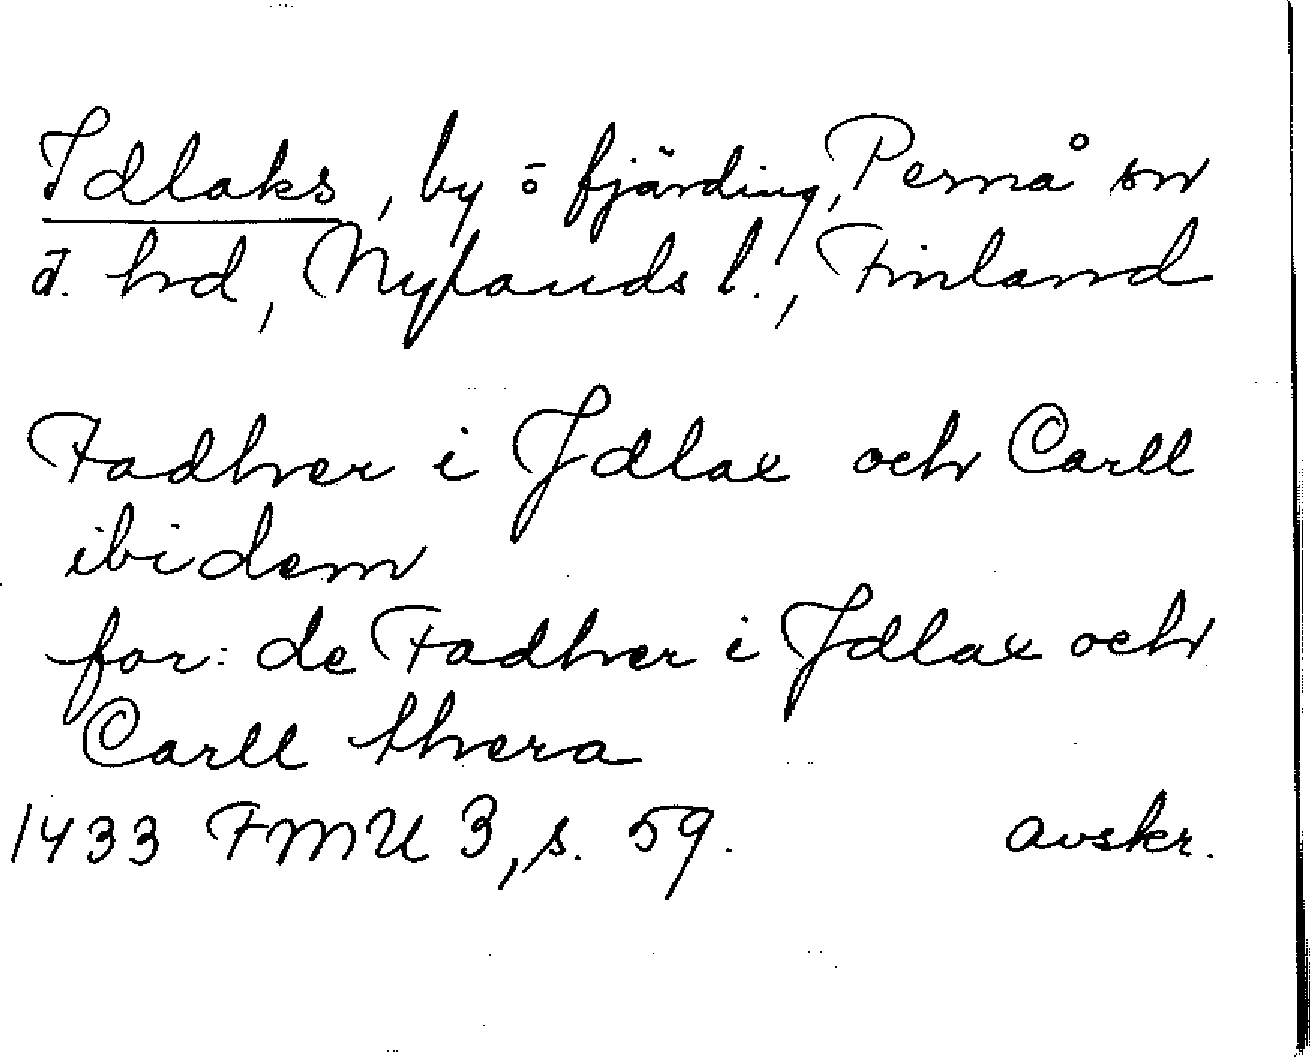 Idlaks, by ö fjärding, Pernå sn
ö. hd, Nylands l., Finland
Fadhver i Jdlax och Carll
ibidem
for: de Fadhver i Jdlax och
Carll thera
1433 FMU 3, s. 59. avskr.